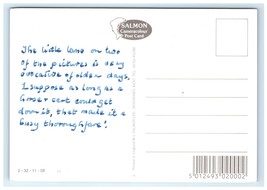 SALMON
Cameracolour
Post Card
The little lane on two
of the pictures is very
evocative of olden days.
I suppose as long as a
horse + cart could get
down it, that made it a
busy thoroughfare!
5 012493 020002